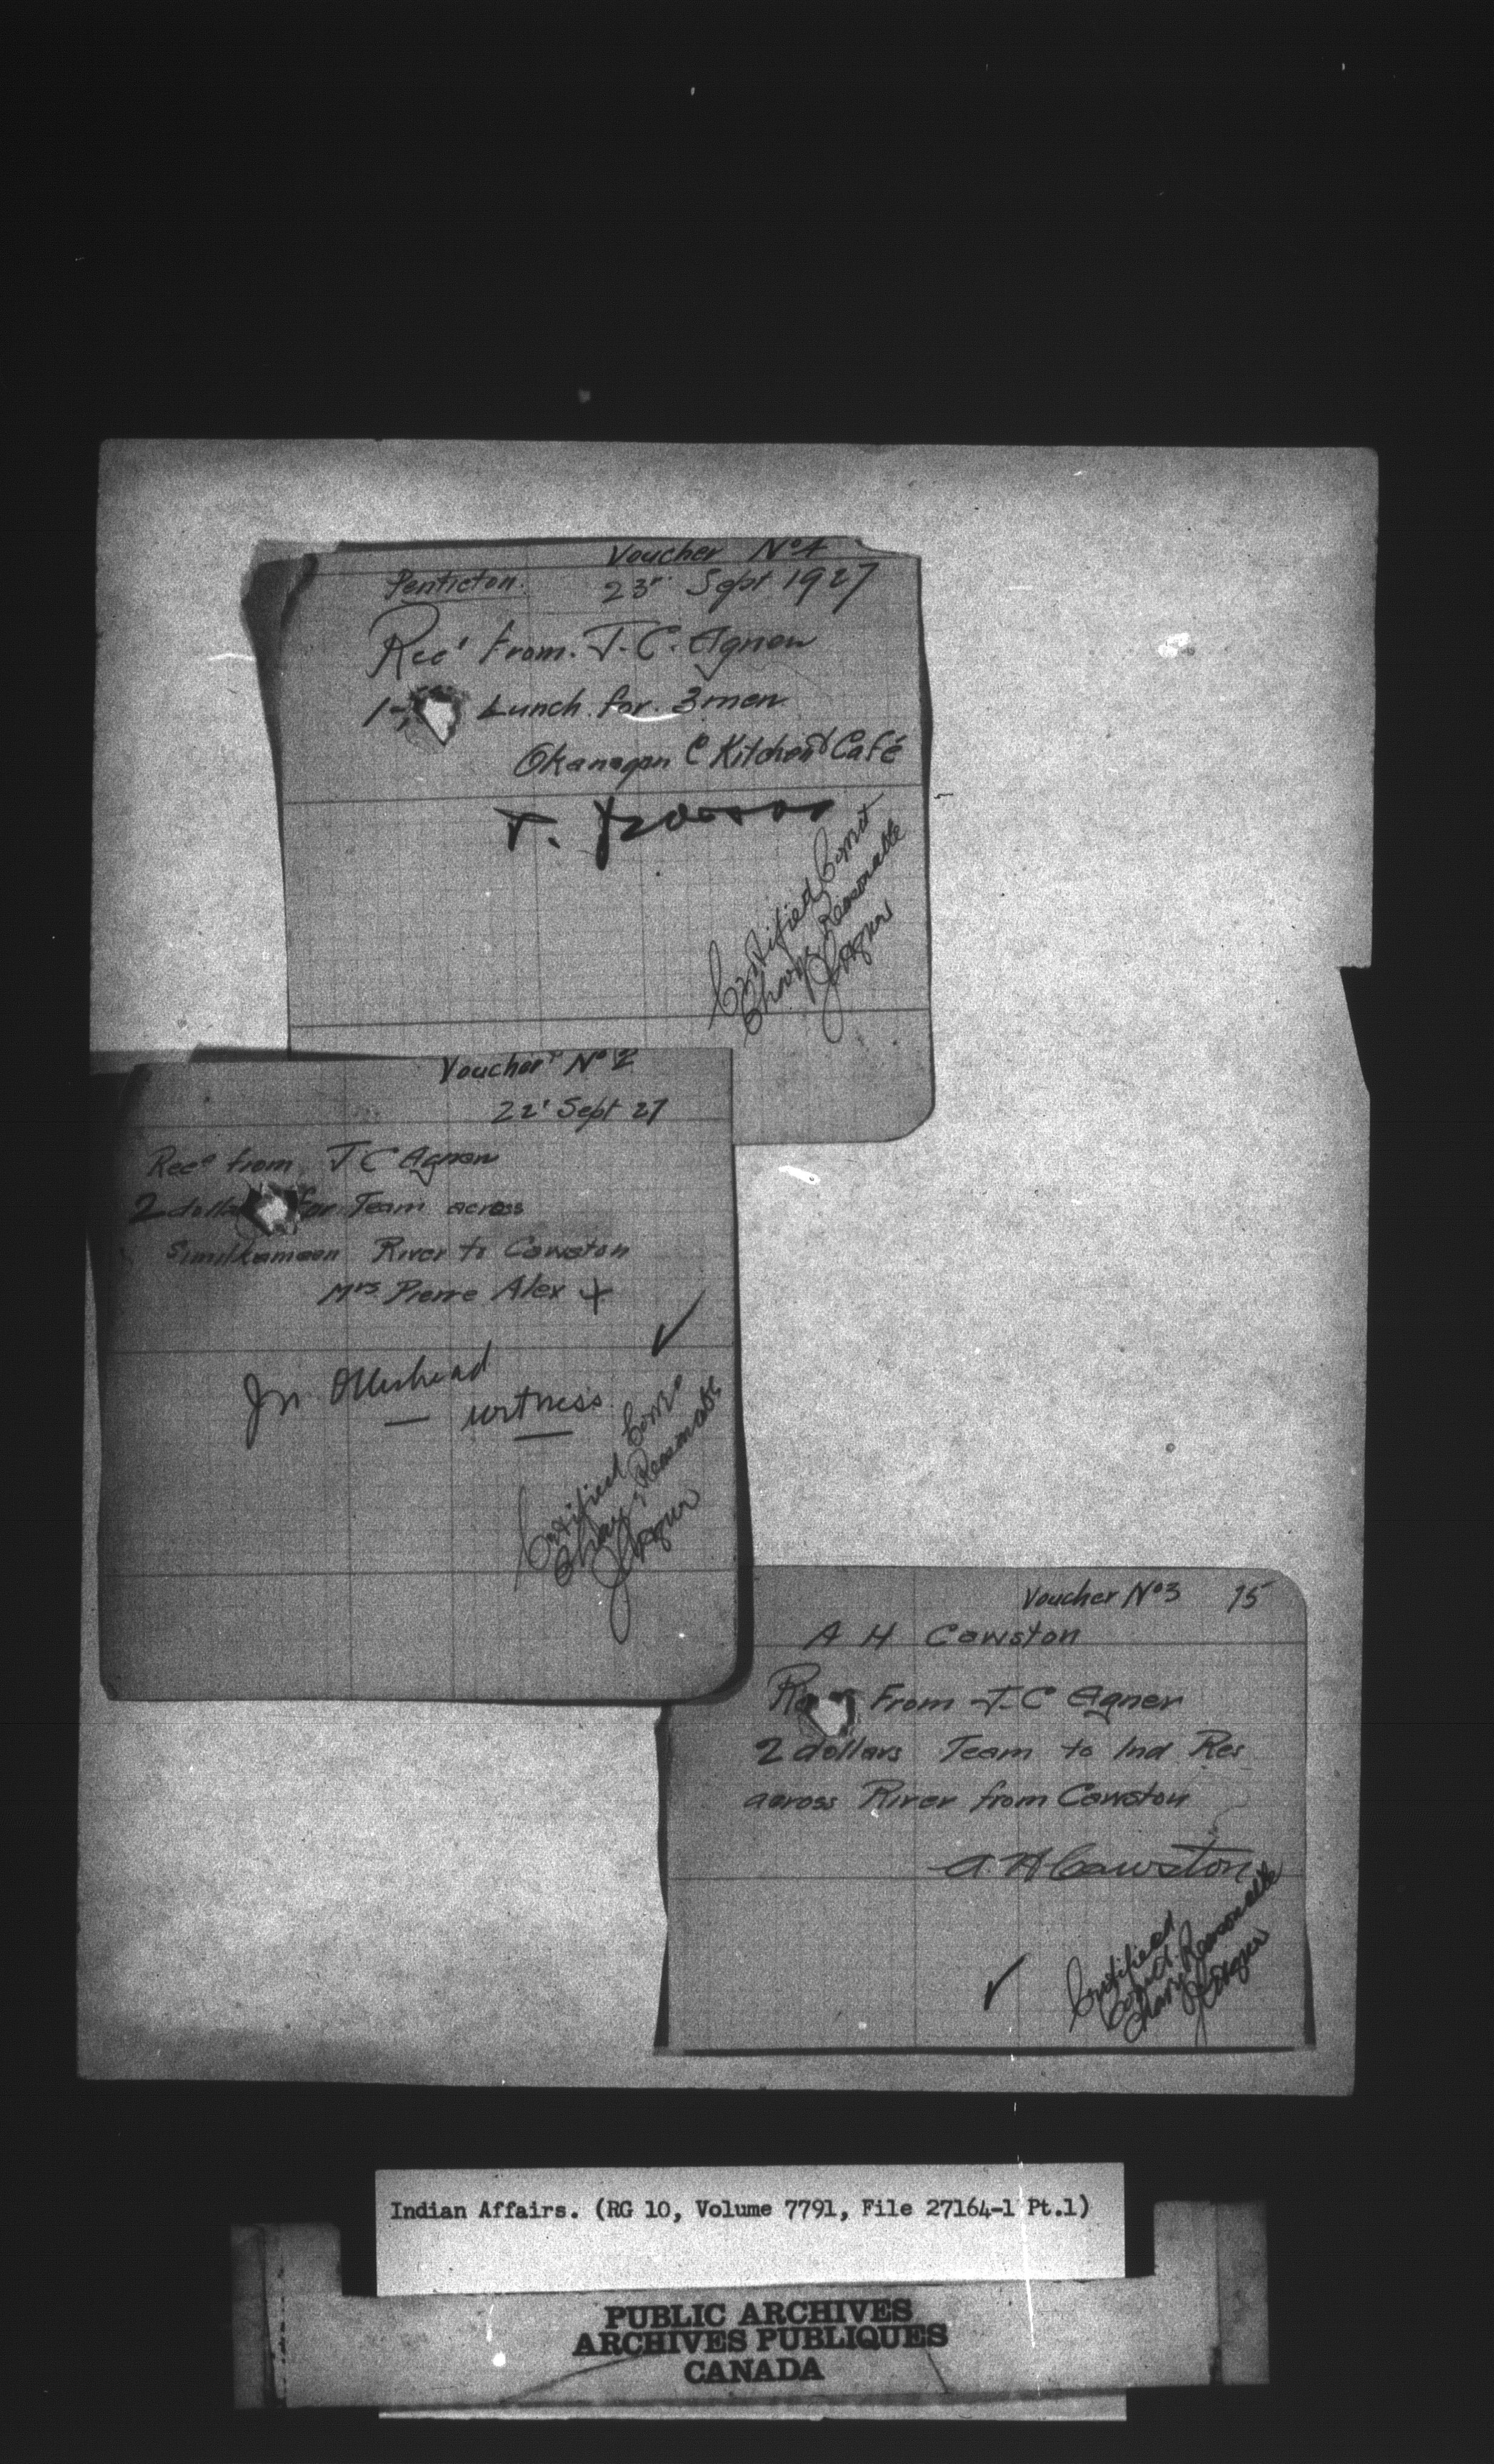 Voucher No 4
Penticton. 23r Sept 1927
Rec' from. J. C. Agnew
Lunch for. 3 men
Okanagan C Kitchen & Café
T.
Certified Correct
Charge Reasonable
JCAgnew
Voucher No 2
22' Sept 27
Recd from J C Agnew
2 dollars for Team across
Similkameen River to Cawston
Mrs Pierre Alex +
witness
Certified Corr
Charge Reasonable
JCAgnew
Voucher No 3 75
A H Cawston
From J. C Agnew
2 dollars Team to Ind Res
across River from Cawston
A. H Cawston
Certified
Correct
Charge Reasonable
JCAgnew
Indian Affairs. (RG 10, Volume 7791, File 27164-1 Pt.1)
PUBLIC ARCHIVES
ARCHIVES PUBLIQUES
CANADA